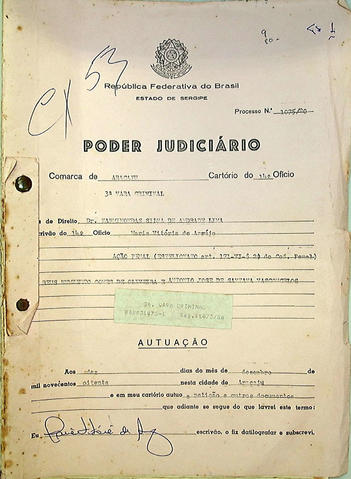 CX 53
República Federativa do Brasil
ESTADO DE SERGIPE
Processo N.º 1075/80
PODER JUDICIÁRIO
Comarca de ARACAJU Cartório do 14º Ofício
3ª VARA CRIMINAL
de Direito, Dr. DE ANDRADE LIMA
crivão do 14º Ofício Maria Vitória de Araújo
AÇÃO PENAL (ESTELIONATO art. 171-VI-§ 2º do Cod. Penal)
E ANTONIO JOSE DE SANTANA VASCONCELOS
3A. VARA CRIMINAL
AUTUAÇÃO
Aos dez dias do mês de dezembro de
mil novecentos oitenta nesta cidade de Aracaju
e em meu cartório autuo a petição e outros documentos
que adiante se segue do que lavrei este termo:
Eu, escrivão, o fiz datilografar e subscrevi.